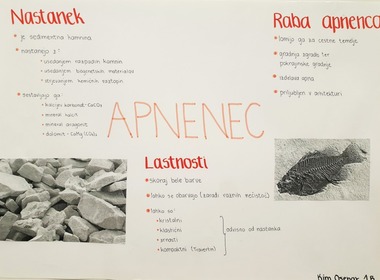 Nastanek
• je sedimentna kamnina
• nastanejo z:
• usedanjem razpadlih kamnin
• usedanjem bogatih materialov
• strjevanjem kamnin
• sestavljajo ga:
• kalcijev karbonat - CaCO₃
• mineral kalcit
• mineral aragonit
• dolomit - CaMg(CO₃)₂
APNENEC
Raba apnenca
• lomijo ga za cestne temelje
• gradnja zgradb ter
pokrajinske gradnje
• izdelava apna
• priljubljen v arhitekturi
Lastnosti
• skoraj bele barve
• lahko se obarvajo (zaradi raznih nečistoč)
• lahko so:
• kristalni
• klastični
• zrnati
• kompaktni
odvisno od nastanka